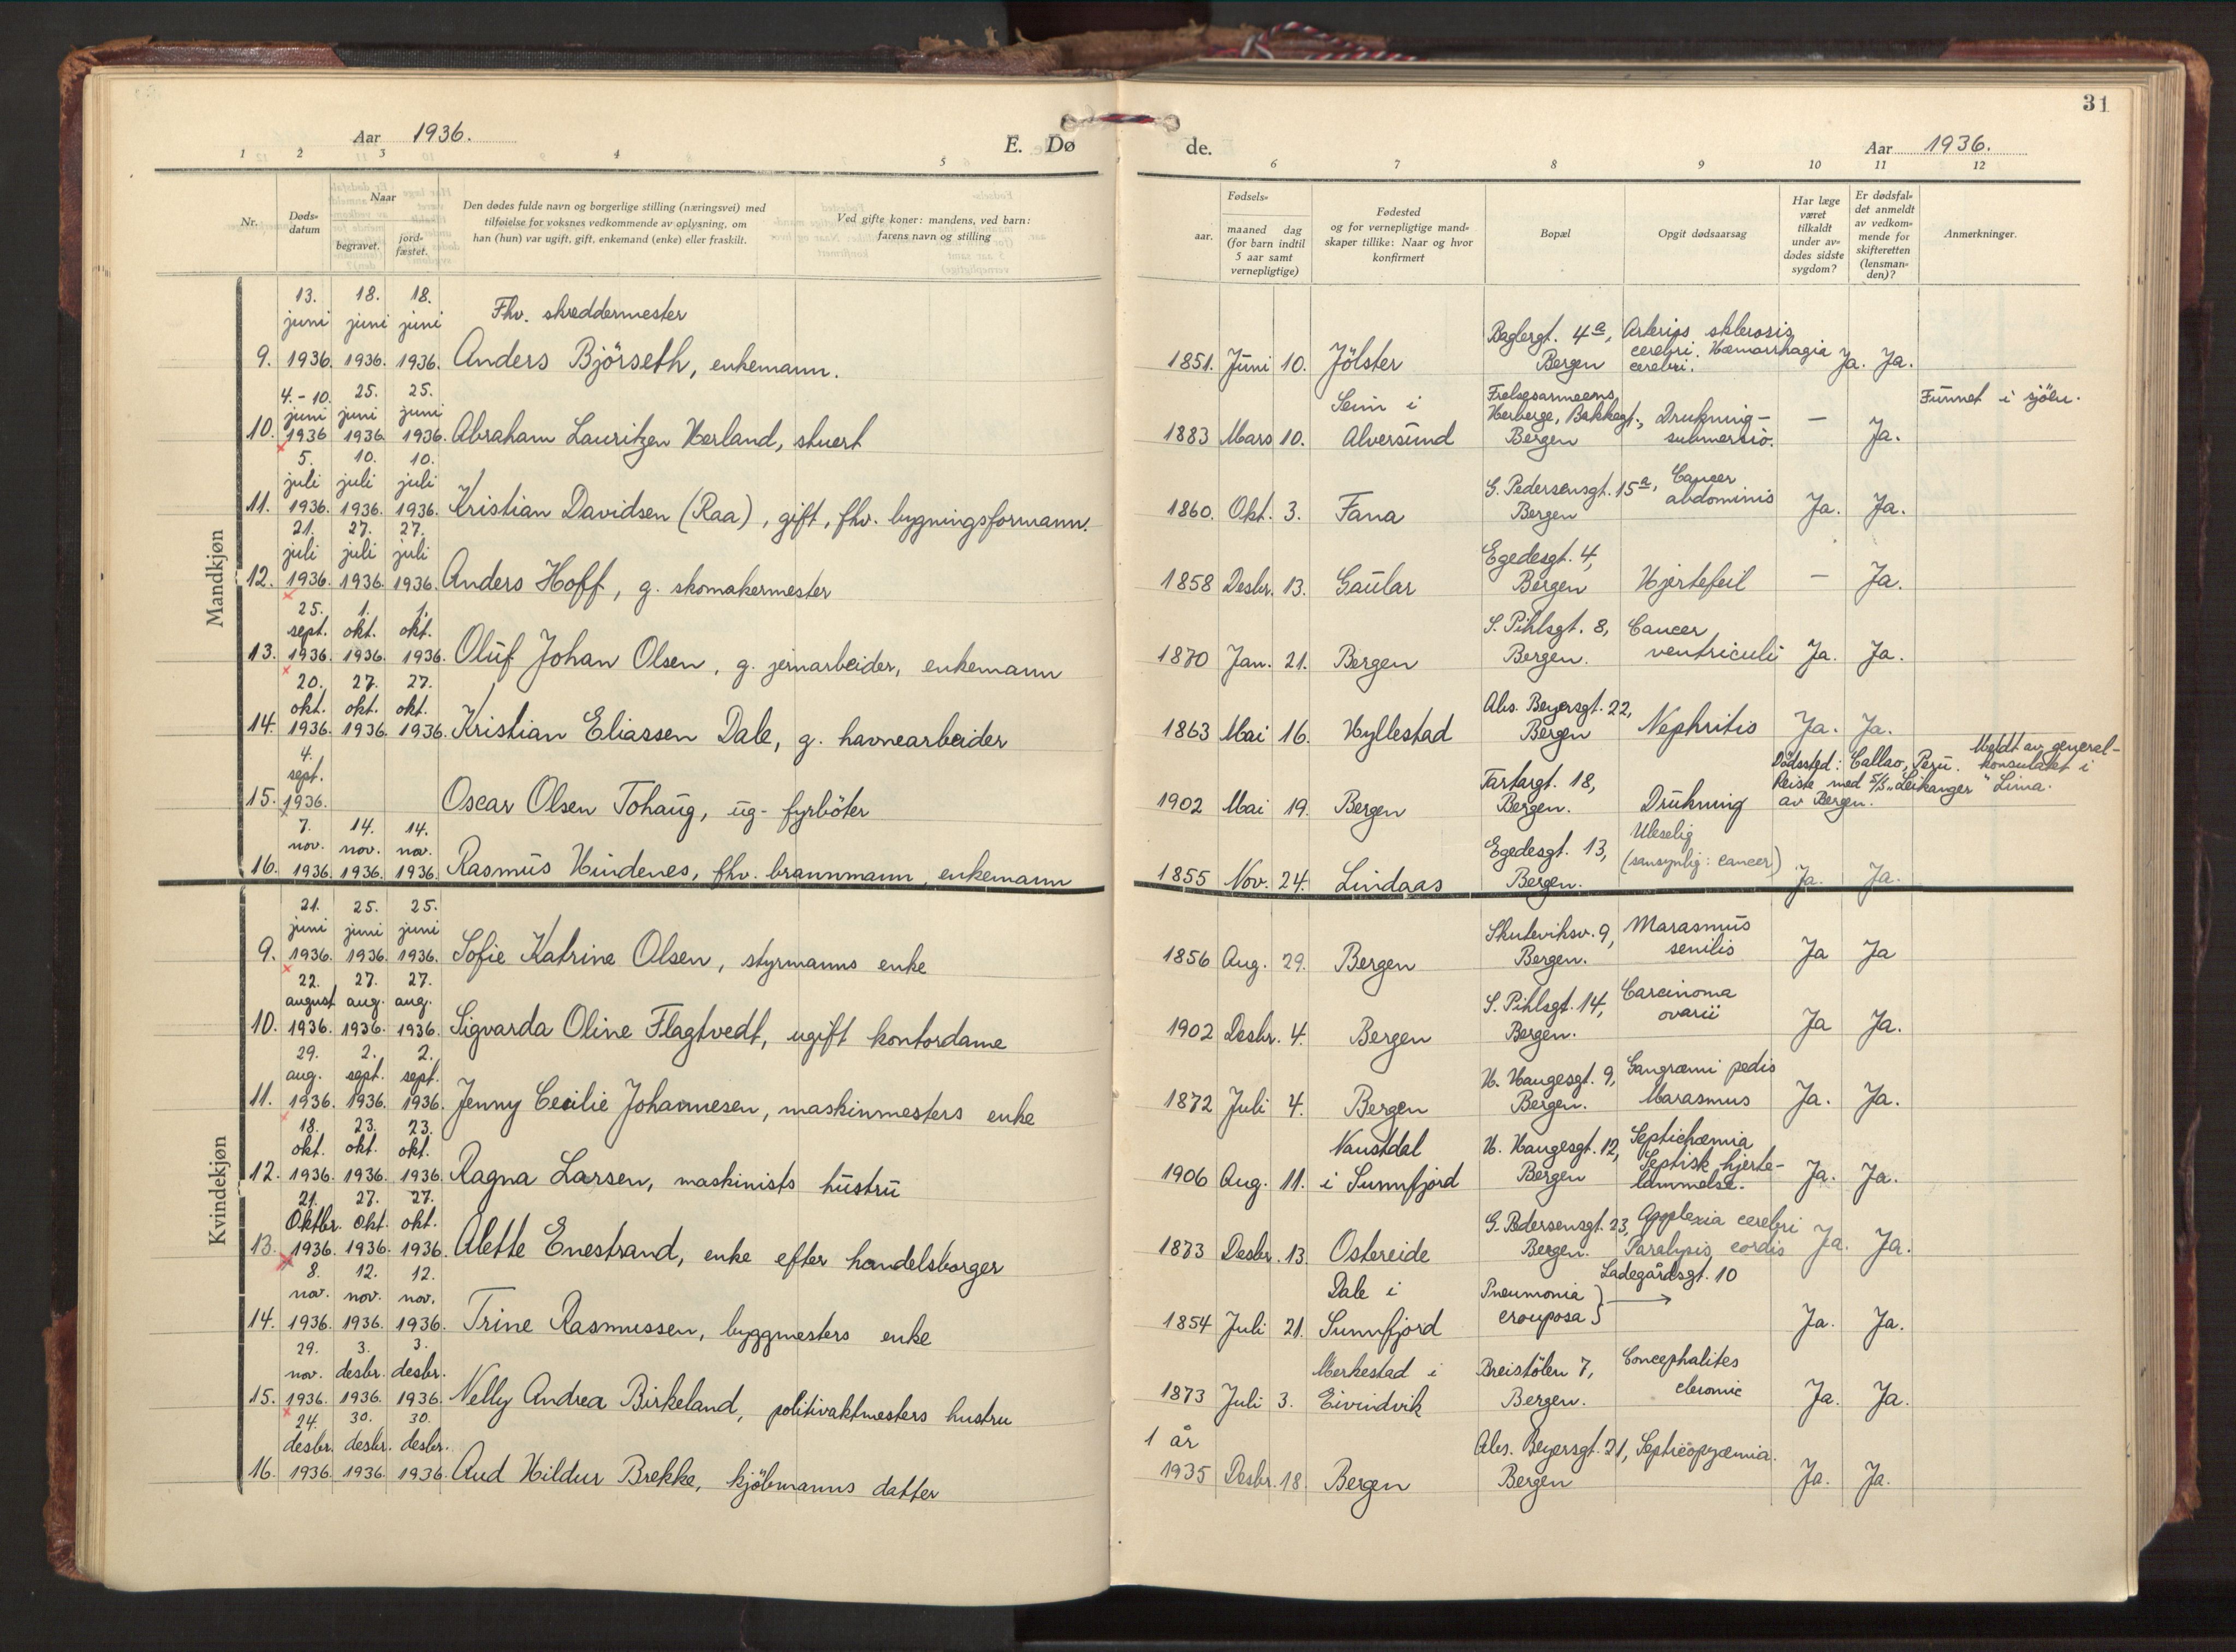 31
Aar 1936.
E. Dø
de.
Aar 1936.
1 2 3 4 5
6 7 8 9 10 11 12
Nr.
Døds-
datum
Naar
begravet.
jord-
fæstet.
Den dødes fulde navn og borgerlige stilling (næringsvei) med
tilføielse for voksnes vedkommende av oplysning, om
han (hun) var ugift, gift, enkemand (enke) eller fraskilt.
Ved gifte koner: mandens, ved barn:
farens navn og stilling
Fødsels-
aar.
maaned dag
(for barn indtil
5 aar samt
vernepligtige)
Fødested
og for vernepligtige mand-
skaper tillike: Naar og hvor
konfirmert
Bopæl
Opgit dødsaarsag
Har læge
været
tilkaldt
under av-
dødes sidste
sygdom?
Er dødsfal-
det anmeldt
av vedkom-
mende for
skifteretten
(lensman-
den)?
Anmerkninger.
Mandkjøn
13. 18. 18.
juni juni juni Fhv. skreddermester
9. 1936. 1936. 1936. Anders Björseth, enkemann.
Baglergt. 4a, Arterios sklerosis
cerebri. Hæmorrhagia
1851. Juni 10. Jölster Bergen cerebri. Ja. Ja.
4.-10. 25. 25.
juni juni juni
10. 1936 1936 1936. Abraham Lauritzen Herland, stuert
Seim i Frelsesarmeens Funnet i sjöen.
Herberge, Bakkegt., Drukning -
1883 Mars 10. Alversund Bergen submersio. — Ja.
5. 10. 10.
juli juli juli
11. 1936. 1936. 1936. Kristian Davidsen (Raa), gift, fhv. bygningsformann.
G. Pedersensgt. 15a, Cancer
1860. Okt. 3. Fana Bergen abdominis Ja. Ja.
21. 27. 27.
juli juli juli
12. 1936. 1936. 1936. Anders Hoff, g. skomakermester
Egedesgt. 4,
1858 Desbr. 13. Gaular Bergen Hjertefeil — Ja.
25. 1. 1.
sept. okt. okt.
13. 1936. 1936. 1936. Oluf Johan Olsen, g. jernarbeider, enkemann
S. Pihlsgt. 8, Cancer
1870 Jan. 21. Bergen Bergen. ventriculi Ja. Ja.
20. 27. 27.
okt. okt. okt.
14. 1936. 1936. 1936. Kristian Eliassen Dale, g. havnearbeider
Abs. Beyersgt. 22,
1863 Mai 16. Hyllestad Bergen Nephritis Ja. Ja.
4.
sept.
15. 1936. Oscar Olsen Tohaug, ug- fyrböter
Meldt av general-
Dödssted: Callao, Peru. konsulatet i
Tartargt. 18, Reiste med S/S „Leikanger" Lima.
1902 Mai 19. Bergen Bergen. Drukning av Bergen.
7. 14. 14.
nov. nov. nov.
16. 1936. 1936. 1936. Rasmus Hindenes, fhv. brannmann, enkemann
Uleselig
Egedesgt. 13, (sansynlig: cancer)
1855 Nov. 24. Lindaas Bergen. Ja. Ja.
Kvindekjøn
21. 25. 25.
juni juni juni
9. 1936. 1936. 1936. Sofie Katrine Olsen, styrmanns enke
Skuteviksv. 9, Marasmus
1856 Aug. 29. Bergen Bergen. senilis Ja Ja
22. 27. 27.
august aug. aug.
10. 1936. 1936. 1936. Sigvarda Oline Flagtvedt, ugift kontordame
S. Pihlsgt. 14, Carcinoma
1902 Desbr. 4. Bergen Bergen. ovarii Ja Ja.
29. 2. 2.
aug. sept. sept.
11. 1936. 1936. 1936. Jenny Cecilie Johannesen, maskinmesters enke
H. Haugesgt. 9, Gangræni pedis
1872 Juli 4. Bergen Bergen. Marasmus Ja. Ja.
18. 23. 23.
okt. okt. okt.
12. 1936. 1936. 1936. Ragna Larsen, maskinists hustru
Naustdal H. Haugesgt. 12, Septichæmia
Septisk hjerte-
1906 Aug. 11. i Sunnfjord Bergen lammelse. Ja. Ja.
21. 27. 27.
Oktbr. okt. okt.
13. 1936. 1936. 1936. Alette Enestrand, enke efter handelsborger
G. Pedersensgt. 23, Apoplexia cerebri
1873 Desbr. 13. Ostereide Bergen. Paralysis cordis Ja. Ja.
8. 12. 12.
nov. nov. nov.
14. 1936. 1936. 1936. Trine Rasmussen, byggmesters enke
Ladegårdsgt. 10
Dale i Pneumonia
1854 Juli 21. Sunnfjord crouposa Ja. Ja.
29. 3. 3.
nov. desbr. desbr.
15. 1936. 1936. 1936. Nelly Andrea Birkeland, politivaktmesters hustru
Merkestad i Breistölen 7, Concephalites
1873 Juli 3. Eivindvik Bergen. cleromic Ja. Ja.
24. 30. 30.
desbr. desbr. desbr.
16. 1936. 1936. 1936. Aud Hildur Brekke, kjöbmanns datter
1 år Abs. Beyersgt. 21, Septicopyæmia.
1935 Desbr. 18. Bergen Bergen Ja. Ja.